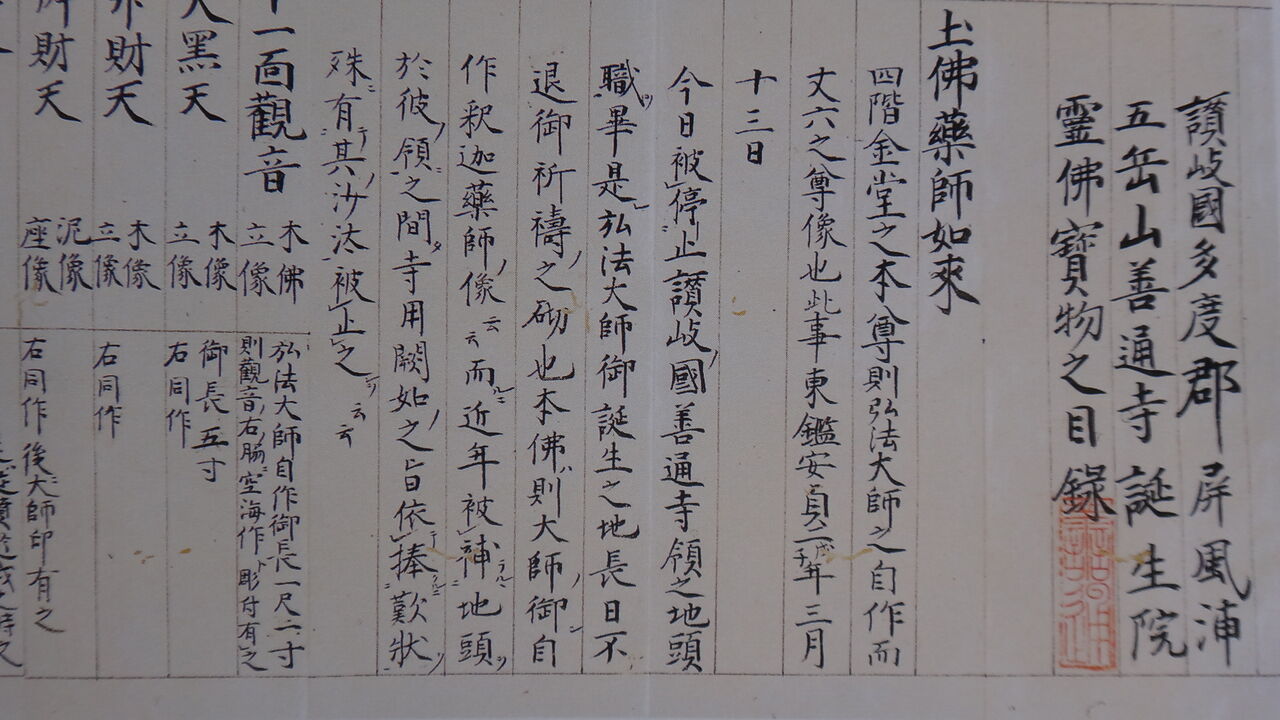 讃岐國多度郡屏風浦
五岳山善通寺誕生院
靈佛寳物之目錄
土佛藥師如來
四階金堂之本尊則弘法大師之自作而
丈六之尊像也此事東鑑安貞二戊子年三月
十三日
今日被停止讃岐國善通寺領之地頭
職畢是弘法大師御誕生之地長日不
退御祈禱之砌也本佛則大師御自
作釈迦藥師像云云而近年被補地頭
於彼領之間寺用闕如之旨依捧歎狀
殊有其沙汰被止之云云
一面觀音 木佛立像 弘法大師自作御長一尺二寸則觀音右脇空海作ト彫付有之
黑天 木像立像 御長五寸右同作
財天 木像立像 右同作
財天 泥像座像 右同作後大師印有之